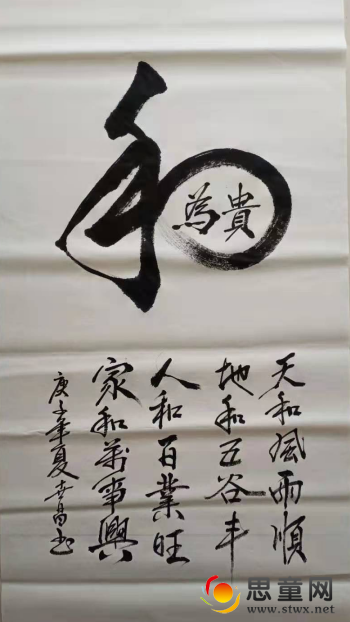 和
為貴
天和風雨順
地和五谷丰
人和百業旺
家和萬事興
庚子年夏昌书
思童网
www.stwx.net